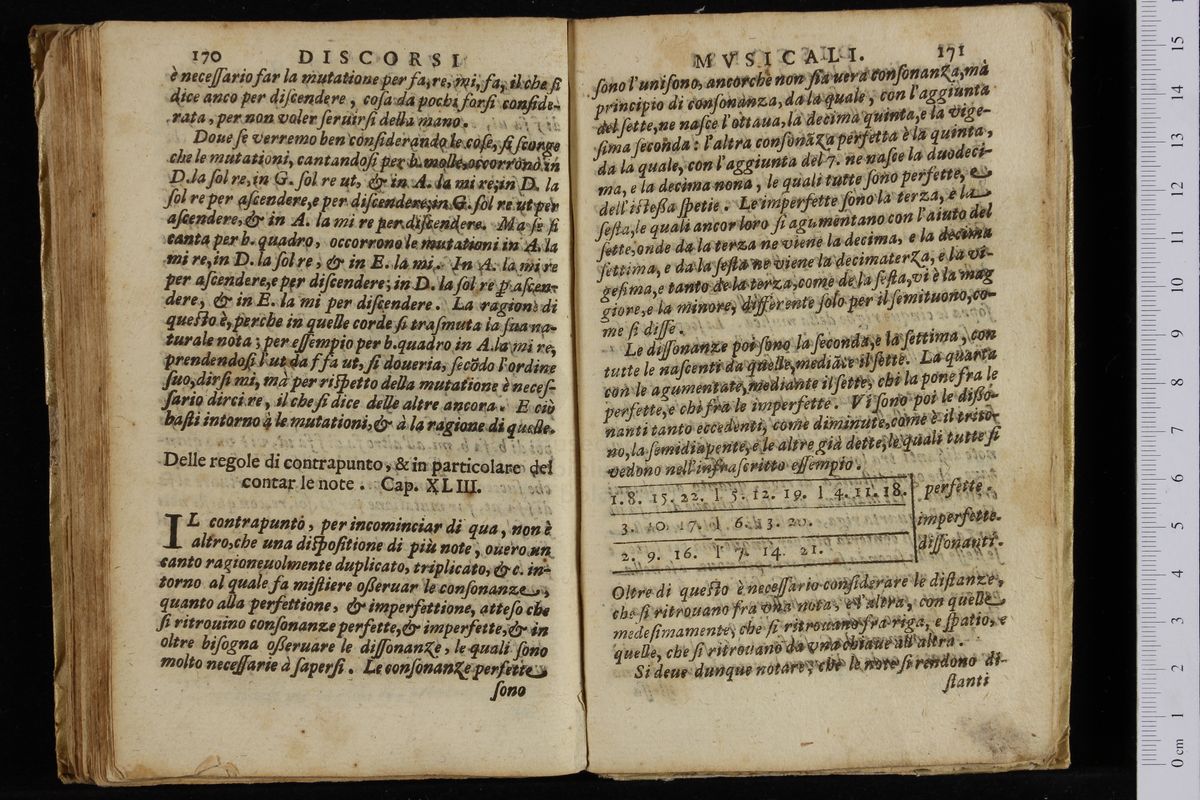 170 DISCORSI
è neceſſario far la mutatione per fa, re, mi, fa, il che ſi
dice anco per diſcendere, coſa da pochi forſi conſide-
rata, per non voler ſeruirſi della mano.
Doue ſe verremo ben conſiderando le coſe, ſi ſcorge
che le mutationi, cantandoſi per b. molle, occorrono in
D. la ſol re, in G. ſol re ut, & in A. la mi re; in D. la
ſol re per aſcendere, e per diſcendere; in G. ſol re ut per
aſcendere, & in A. la mi re per diſcendere. Ma ſe ſi
canta per b. quadro, occorrono le mutationi in A. la
mi re, in D. la ſol re, & in E. la mi. In A. la mi re
per aſcendere, e per diſcendere; in D. la ſol re ꝑ aſcen-
dere, & in E. la mi per diſcendere. La ragione di
queſto è, perche in quelle corde ſi traſmuta la ſua na-
turale nota; per eſſempio per b. quadro in A. la mi re,
prendendoſi l'ut da f fa ut, ſi doueria, ſecōdo l'ordine
ſuo, dirſi mi, mà per riſpetto della mutatione è neceſ-
ſario dirci re, il che ſi dice delle altre ancora. E ciò
baſti intorno à le mutationi, & à la ragione di quelle.
Delle regole di contrapunto, & in particolare del
contar le note. Cap. XLIII.
IL contrapunto, per incominciar di qua, non è
altro, che una diſpoſitione di più note, ouero un
canto ragioneuolmente duplicato, triplicato, & c. in-
torno al quale fa miſtiere oßeruar le conſonanze,
quanto alla perfettione, & imperfettione, atteſo che
ſi ritrouino conſonanze perfette, & imperfette, & in
oltre biſogna oßeruare le diſſonanze, le quali ſono
molto neceſſarie à ſaperſi. Le conſonanze perfette
ſono
MVSICALI. 171
ſono l'uniſono, ancorche non ſia uera conſonanza, mà
principio di conſonanza, da la quale, con l'aggiunta
del ſette, ne naſce l'ottaua, la decima quinta, e la vige-
ſima ſeconda: l'altra conſonāza perfetta è la quinta,
da la quale, con l'aggiunta del 7. ne naſce la duodeci-
ma, e la decima nona, le quali tutte ſono perfette, e
dell'iſteßa ſpetie. Le imperfette ſono la terza, e la
ſeſta, le quali ancor loro ſi agumentano con l'aiuto del
ſette, onde da la terza ne viene la decima, e la decima
ſettima, e da la ſeſta ne viene la decimaterza, e la vi-
geſima, e tanto de la terza, come de la ſeſta, vi è la mag
giore, e la minore, differente ſolo per il ſemituono, co-
me ſi diſſe.
Le diſſonanze poi ſono la ſeconda, e la ſettima, con
tutte le naſcenti da quelle, mediāte il ſette. La quarta
con le agumentate, mediante il ſette, chi la pone fra le
perfette, e chi fra le imperfette. Vi ſono poi le diſſo-
nanti tanto eccedenti, come diminute, come è il trito-
no, la ſemidiapente, e le altre già dette, le quali tutte ſi
vedono nell'infraſcritto eſſempio.
1. 8. 15. 22. | 5. 12. 19. | 4. 11. 18. perfette.
3. 10. 17. | 6. 13. 20. imperfette.
2. 9. 16. | 7. 14. 21. diſſonanti.
Oltre di queſto è neceſſario conſiderare le diſtanze,
che ſi ritrouano fra vna nota, e l'altra, con quelle
medeſimamente, che ſi ritrouano fra riga, e ſpatio, e
quelle, che ſi ritrouano da vna chiaue all'altra.
Si deue dunque notare, che le note ſi rendono di-
ſtanti
0 cm 1 2 3 4 5 6 7 8 9 10 11 12 13 14 15